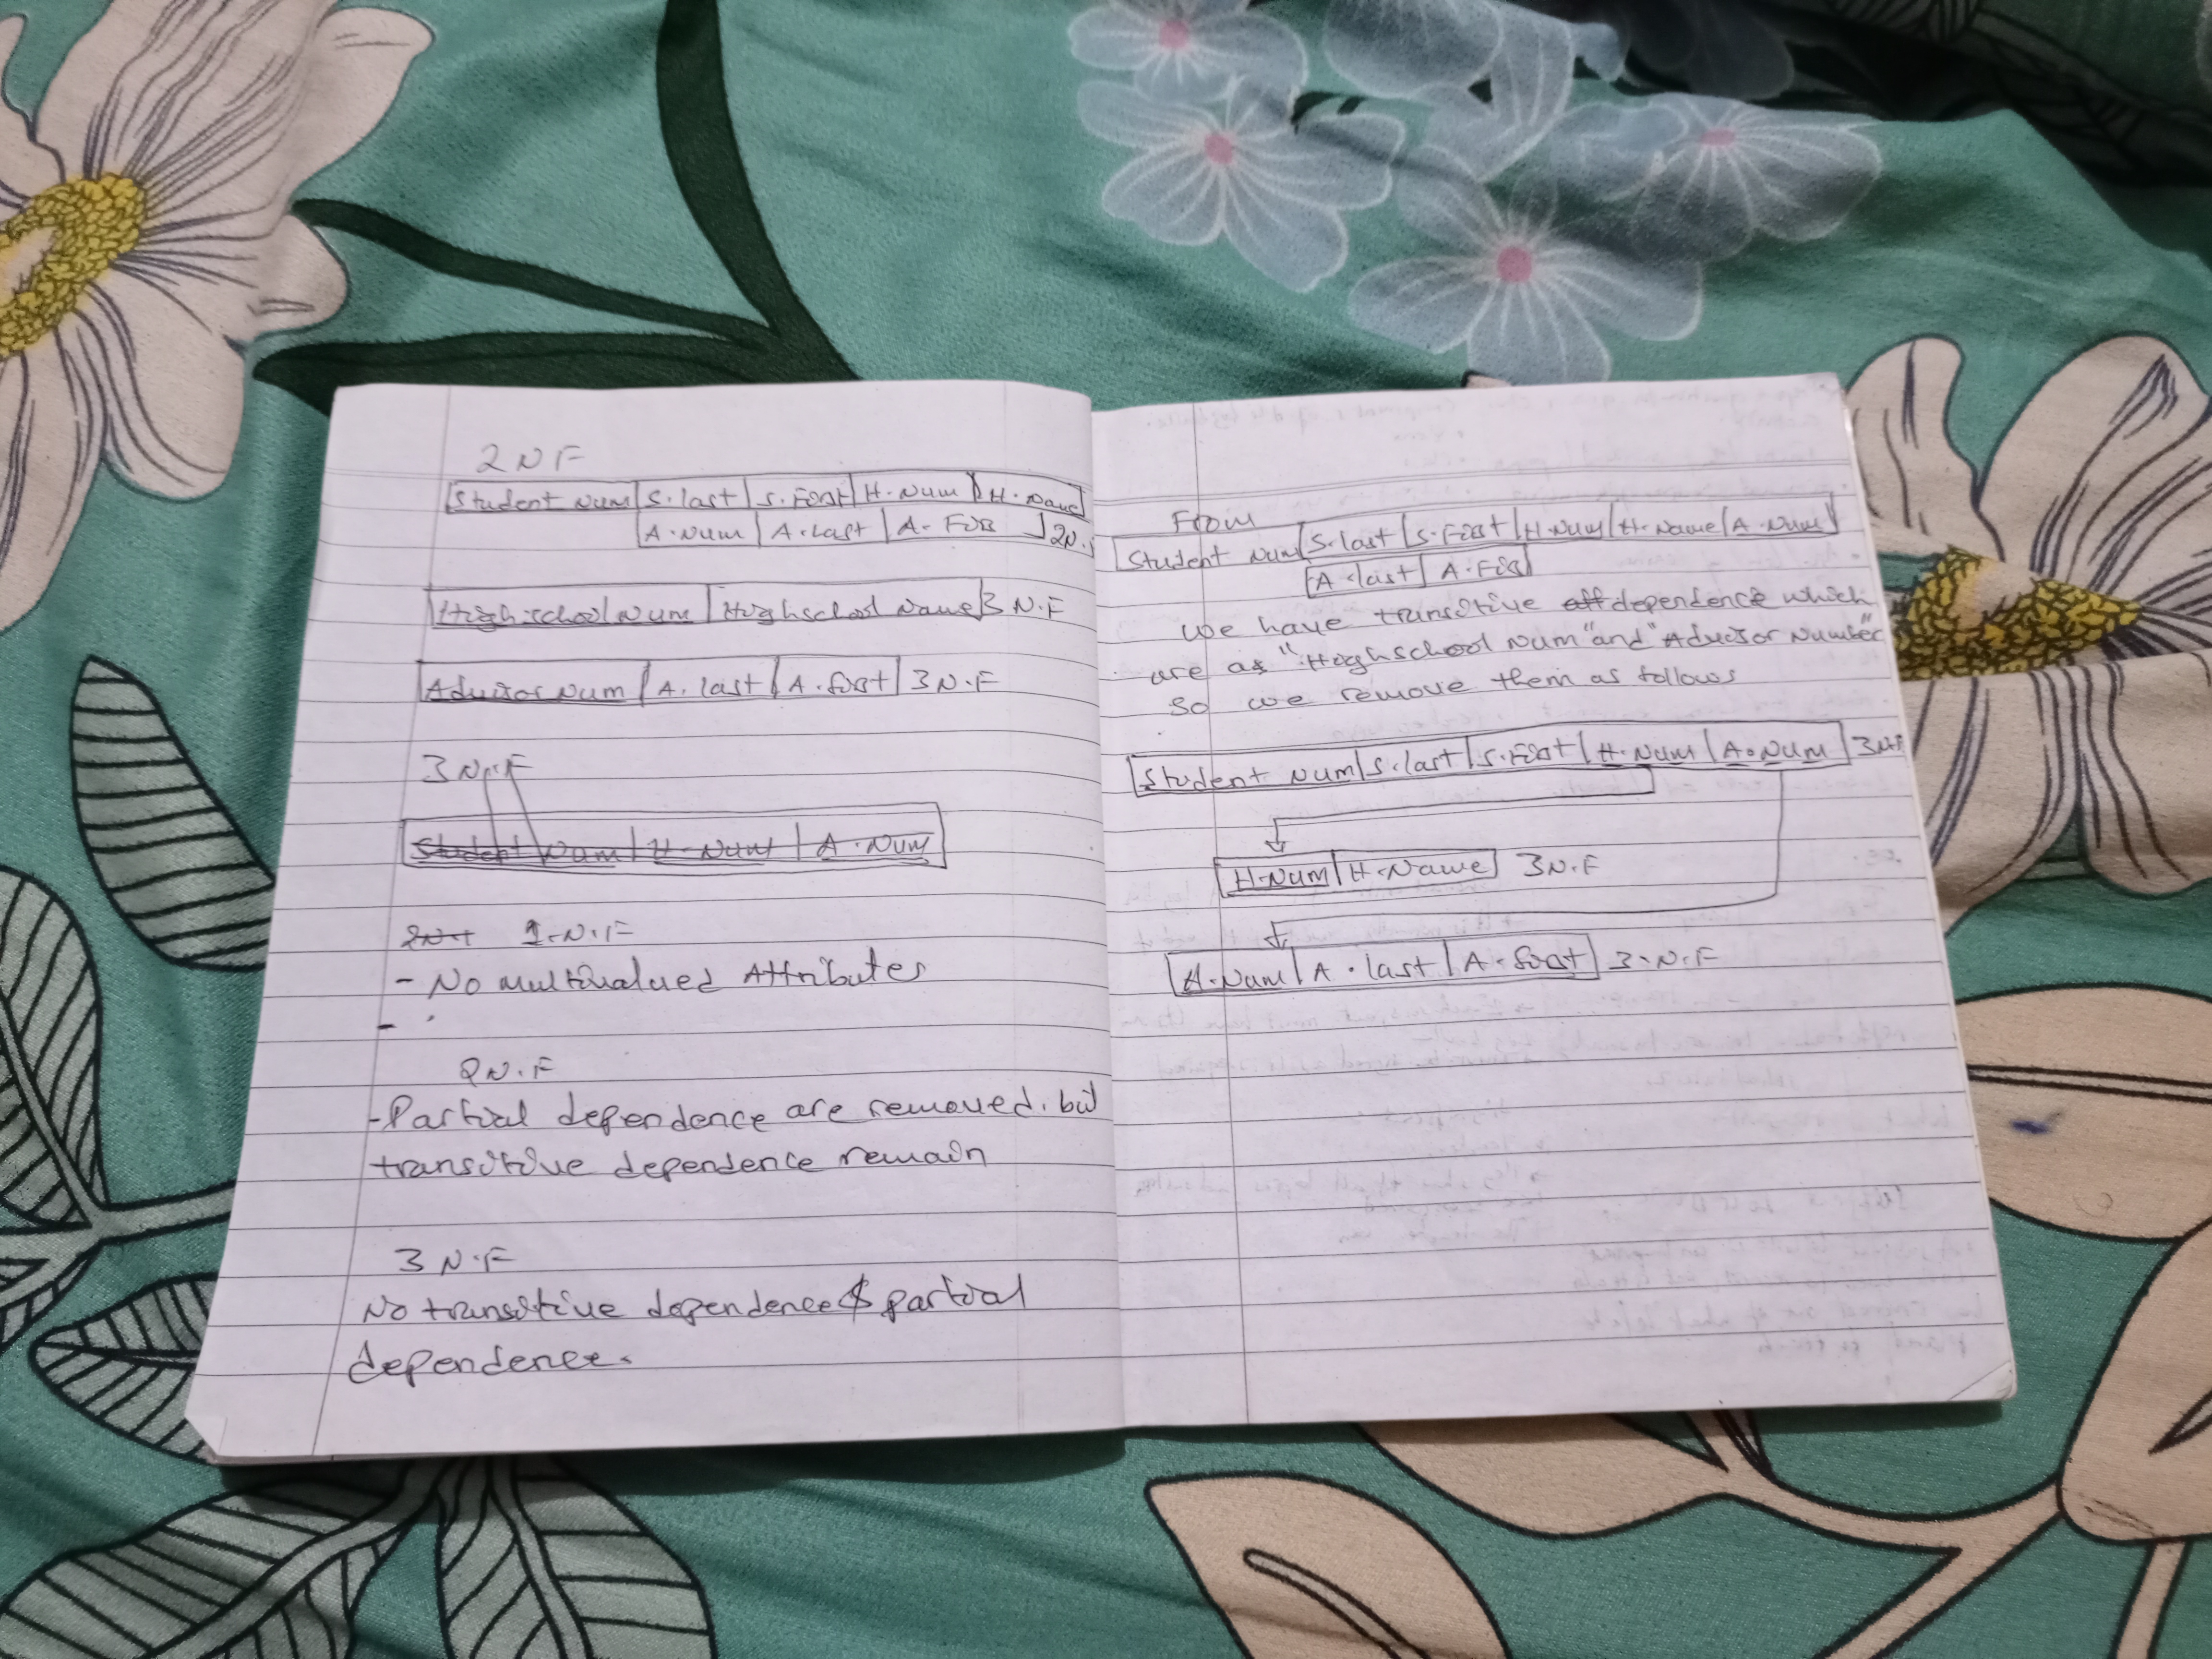 2NF
Student Num S.last S.First H.Num H.Name
A.Num A.Last A. Firs 2N.
Highschool Num Highschool Name 3 N.F
Advisor Num A. last A. first 3 N.F
3N.F
Student Num H.Num A.Num
2N.F 1.N.F
- No multivalued Attributes
-
2N.F
-Partial dependence are removed. but
transitive dependence remain
3 N.F
No transitive dependence & partial
dependence.
From
Student Num S.last S.First H.Num H.Name A.Num
A.last A.Firs
we have transitive dependence which
are as "Highschool Num" and "Advisor Number"
So we remove them as follows
Student Num S.last S.First H.Num A.Num 3NF
H.Num H.Name 3N.F
A.Num A.last A.first 3.N.F